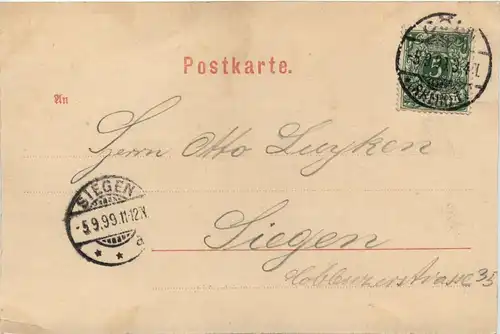 CÖLN
5
Postkarte.
An
Herrn Otto Luyken
SIEGEN
5.9.99.11-12V
a
Siegen
Coblenzerstrasse 35